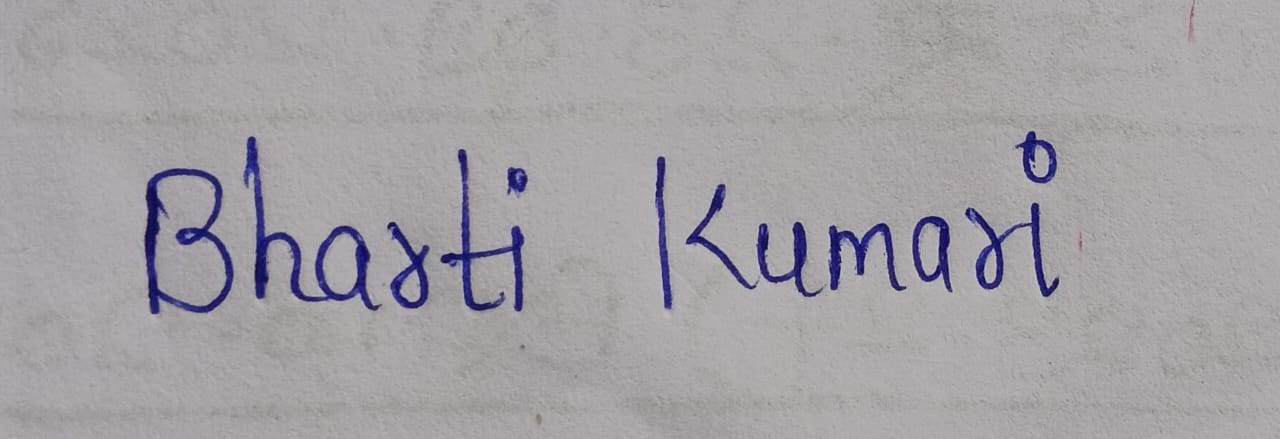 Bharti Kumari